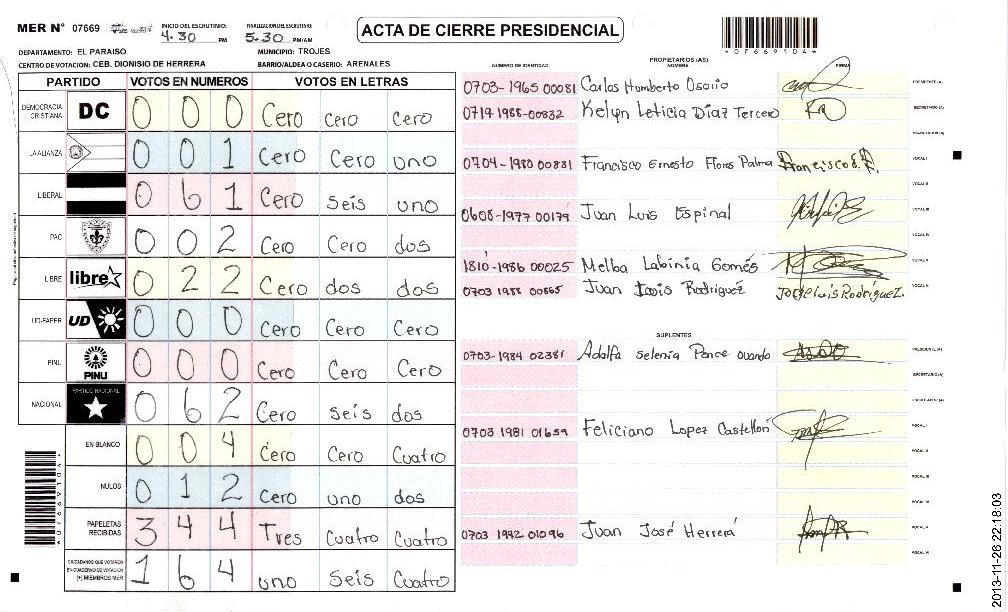 MER N° 07669
INICIO DEL ESCRUTINIO: 4:30 PM
FINALIZACION DEL ESCRUTINIO: 5-30 PM/AM
ACTA DE CIERRE PRESIDENCIAL
*07669104*
DEPARTAMENTO: EL PARAISO
MUNICIPIO: TROJES
CENTRO DE VOTACION: CEB. DIONISIO DE HERRERA
BARRIO/ALDEA O CASERIO: ARENALES
PARTIDO VOTOS EN NUMEROS VOTOS EN LETRAS
DEMOCRACIA CRISTIANA DC 0 0 0 Cero cero Cero
LA ALIANZA 0 0 1 Cero Cero uno
LIBERAL 0 6 1 Cero seis uno
PAC 0 0 2 Cero Cero dos
LIBRE libre 0 2 2 Cero dos dos
UD-FAPER UD 0 0 0 Cero Cero Cero
PINU PINU 0 0 0 Cero Cero Cero
NACIONAL PARTIDO NACIONAL 0 6 2 Cero seis dos
EN BLANCO 0 0 4 Cero Cero Cuatro
NULOS 0 1 2 Cero uno dos
PAPELETAS RECIBIDAS 3 4 4 Tres Cuatro Cuatro
CIUDADANOS QUE VOTARON EN CUADERNO DE VOTACION (+) MIEMBROS MER 1 6 4 uno Seis Cuatro
*07669104*
PROPIETARIOS (AS)
NUMERO DE IDENTIDAD NOMBRE FIRMA
0703-1965 00081 Carlos Humberto Osorio PRESIDENTE (A)
0719-1988-00832 Kelyn Leticia Díaz Tercero SECRETARIO (A)
0704-1980 00831 Francisco Ernesto Flores Palma Francisco E. F. VOCAL I
VOCAL II
0608-1977 00179 Juan Luis Espinal VOCAL III
VOCAL IV
1810-1986 00025 Melba Labinia Gomés VOCAL V
0703 1988 00865 Juan Luis Rodriguez Jorge Luis Rodríguez.
SUPLENTES
0703-1984 02381 Adalfa selenia Ponce ovando PRESIDENTE (A)
SECRETARIO (A)
0703 1981 01659 Feliciano Lopez Castellon VOCAL I
VOCAL II
VOCAL III
0703 1982 01096 Juan José Herrera
2013-11-26 22:18:03